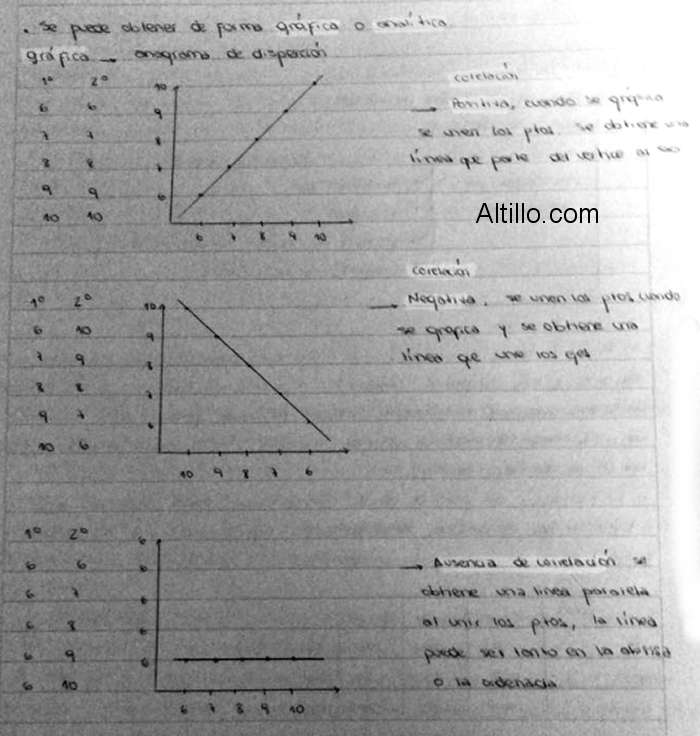 . Se puede obtener de forma gráfica o analítica
gráfica → onograma de dispersión
1º 2º
6 6
7 7
8 8
9 9
10 10
10
9
8
7
6
6 7 8 9 10
correlación
→ Positiva, cuando se gráfica
se unen los ptos. se obtiene una
línea que parte del vertice al ∞
Altillo.com
1º 2º
6 10
7 9
8 8
9 7
10 6
10
9
8
7
6
10 9 8 7 6
correlación
→ Negativa, se unen los ptos cuando
se grafica y se obtiene una
línea qe une los ejes
1º 2º
6 6
6 7
6 8
6 9
6 10
6
6
6
6
6
6 7 8 9 10
→ Ausencia de correlación se
obtiene una línea paralela
al unir los ptos, la línea
puede ser tanto en la
o la ordenada.